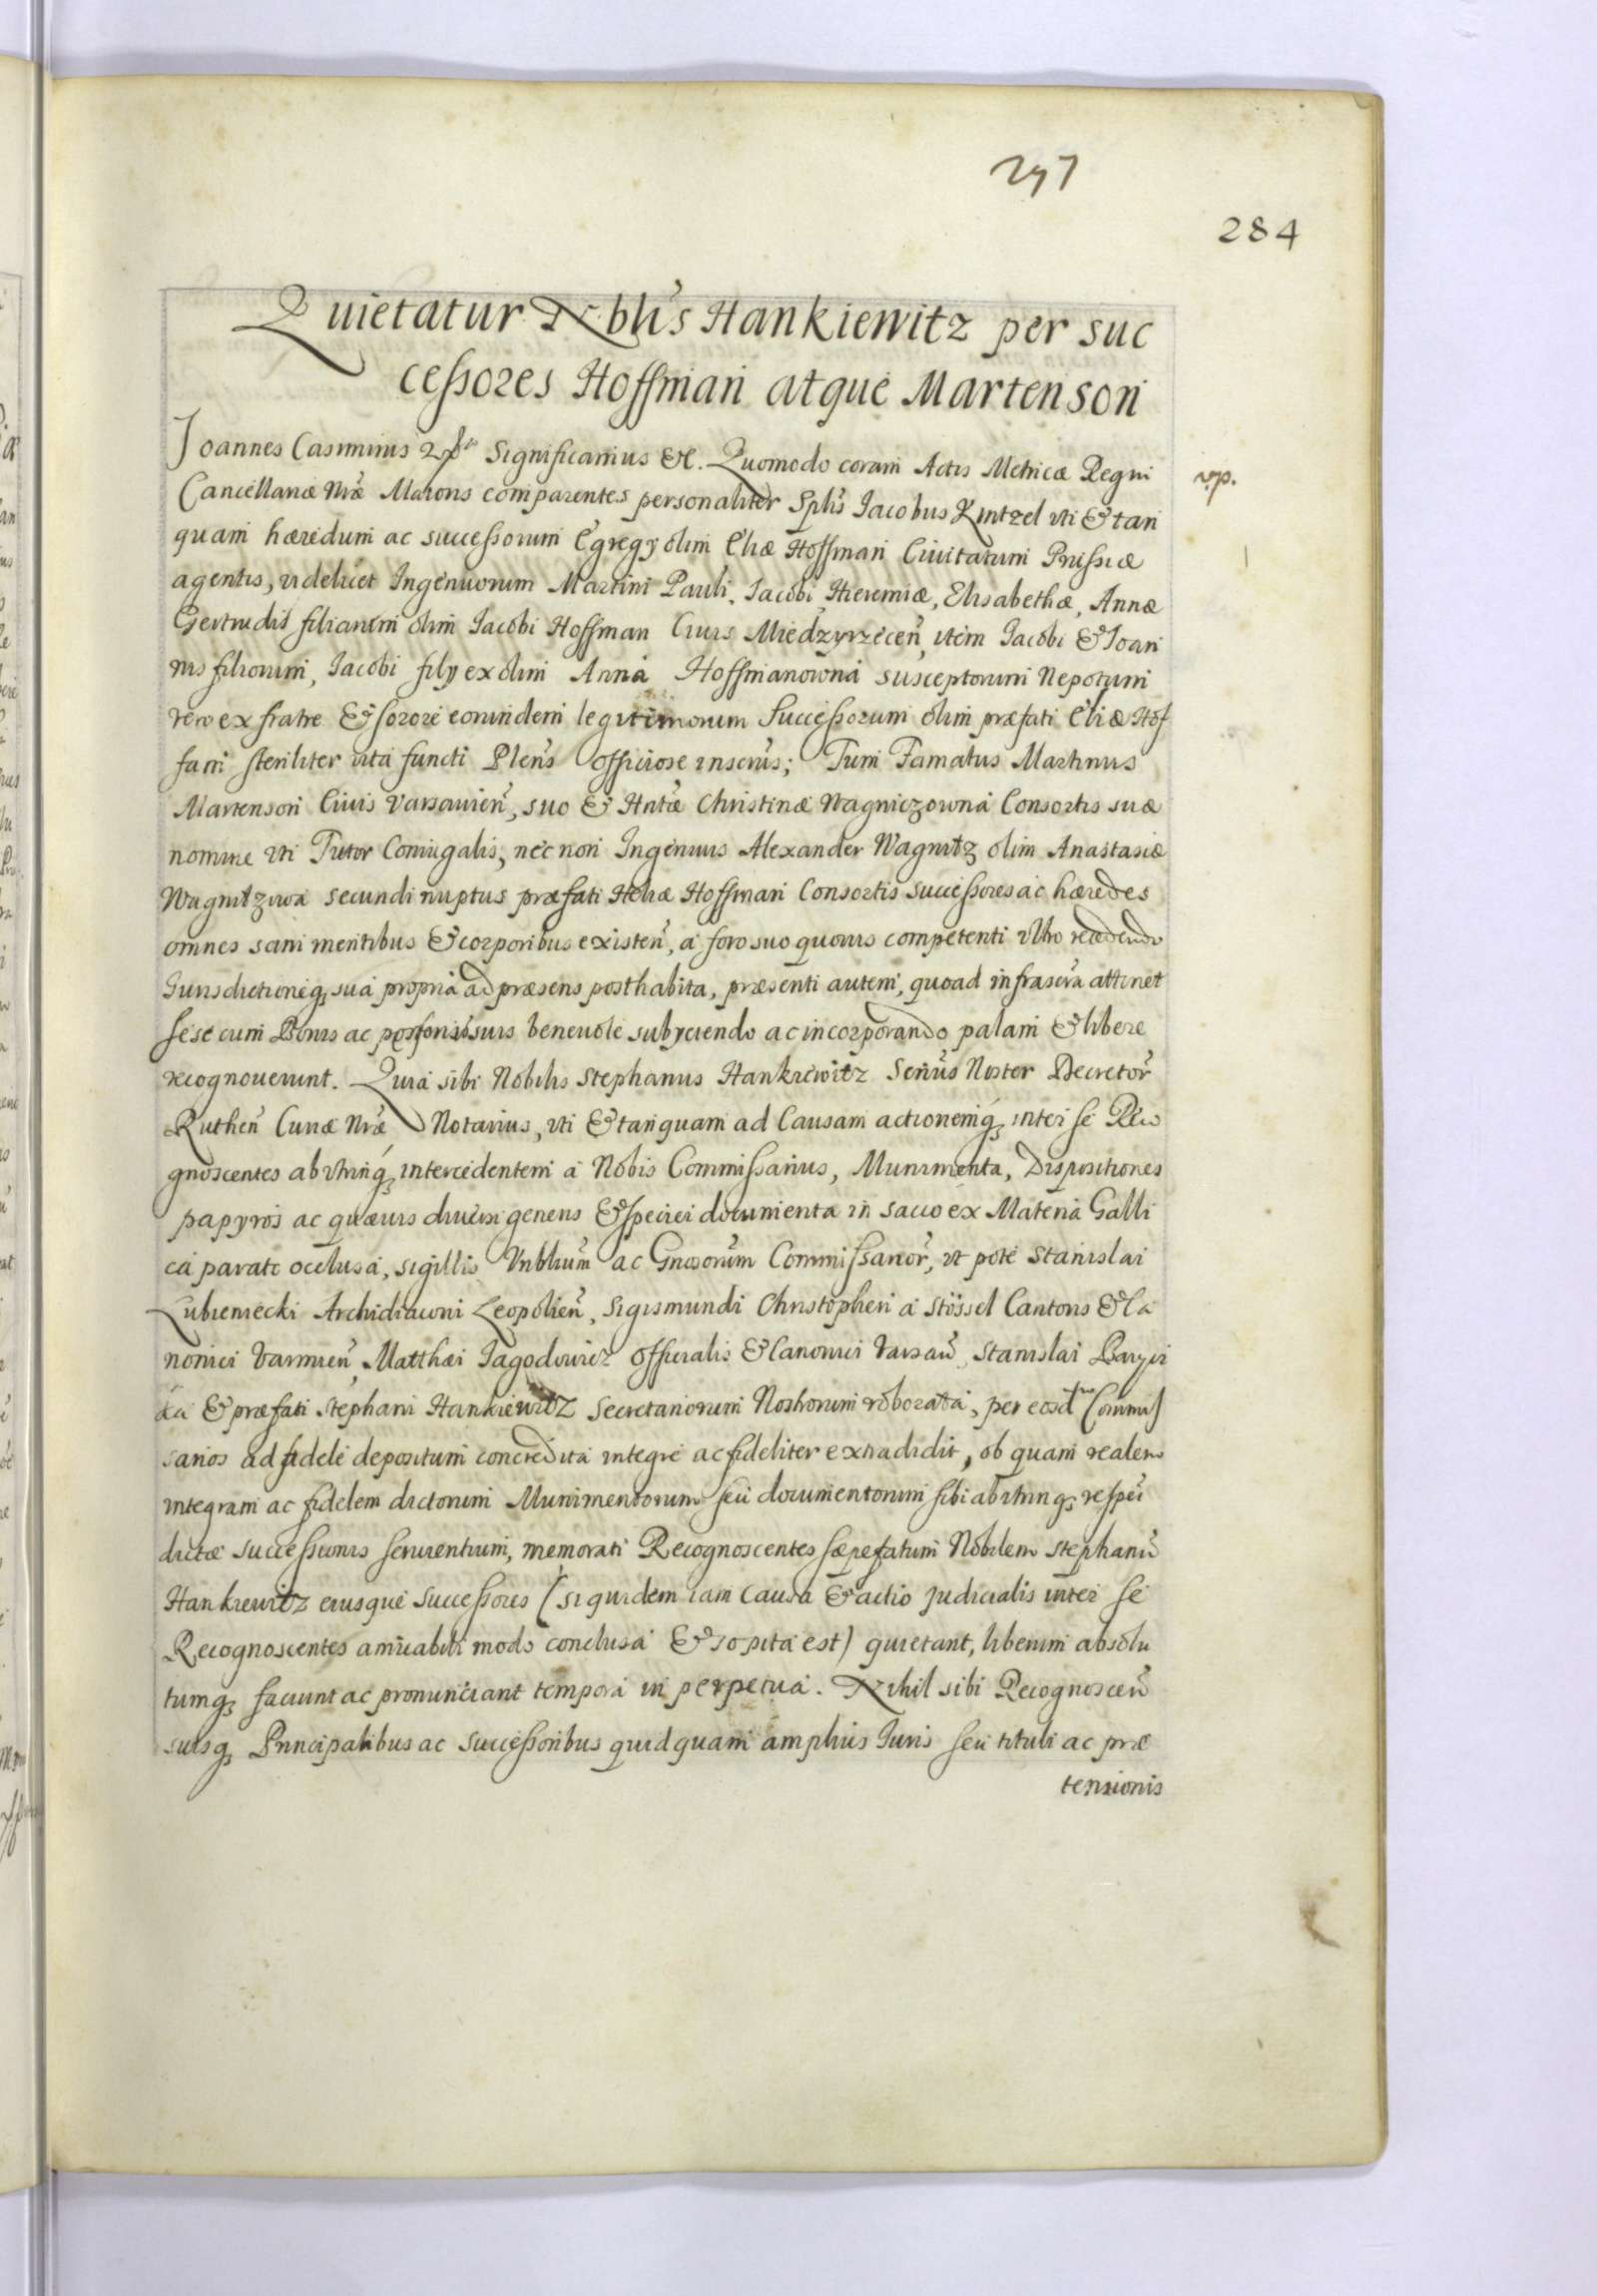 297
284
Quietatur Nblis Hankiewitz per suc
cessores Hoffman atque Martenson
Joannes Casimirus Significamus &c. Quomodo coram Actis Metricæ Regni
Cancellariæ Nræ Maioris comparentes personaliter Splis Jacobus Kintzel uti & tan
quam hæredum ac successorum Egregÿ olim Eliæ Hoffman Civitatum Prussiæ
agentis, videlicet Ingenuorum Martini Pauli, Jacobi Hieremiæ, Elisabethæ, Annæ
Gertrudis filiarum olim Jacobi Hoffman Civis Miedzyrzecen, item Jacobi & Joan
nis filiorum, Jacobi filÿ ex olim Anna Hoffmanowna susceptorum Nepotum
vero ex fratre & sorore eorundem legitimorum Successorum olim præfati Eliæ Hof
fam steriliter vita functi Plens officiose inscrus; Tum Famatus Martinus
Martenson Civis Varsavien, suo & Hntæ Christinæ Wagniczowna Consortis suæ
nomine uti Tutor Coniugalis, nec non Ingenuus Alexander Wagnitz olim Anastasiæ
Wagnitzowa secundi nuptus præfati Heliæ Hoffman Consortis successores ac hæredes
omnes sani mentibus & corporibus existen, a foro suo quovis competenti ultro recedendo
Jurisdictioneq, sua propria ad præsens posthabita, præsenti autem, quoad infrascra attinet
sese cum Bonis ac possonibs suis benevole subÿciendo ac incorporando palam & libere
recognoverunt. Quia sibi Nobilis Stephanus Hankiewitz Serius Noster Decretor
Ruthen Curiæ Nræ Notarius, uti & tanquam ad Causam actionemq, inter se Reco
gnoscentes ab utrinq, intercedentem a Nobis Commissarius, Munimenta, Dispositiones
papyros ac quævis diversi generis & speciei documenta in sacco ex Materia Galli
ca parato occlusa, sigillis Vnblium ac Gnosorum Commissarior, ut pote Stanislai
Lubieniecki Archidiaconi Leopolien, Sigismundi Christopheri a Stössel Cantoris & Ca
nonici Varmien, Matthæi Jagodowicz Officialis & Canonici Varsav, Stanislai Baryci
ka & præfati Stephani Hankiewitz Secretariorum Nostrorum roborata, per eosd Commis
sarios ad fidele depositum concredita integre ac fideliter extradidit, ob quam realem
integram ac fidelem dictorum Munimentorum seu documentorum sibi ab utrinq, respeu
dictæ successionis servientium, memorati Recognoscentes sæpefatum Nobilem Stephanu
Hankiewitz eiusque Successores (siquidem iam Causa & actio judicialis inter se
Recognoscentes amicabili modo conclusa & sopita est) quietant, liberum absolu
tumq, faciunt ac pronunciant tempora in perpetua. Nihil sibi Recognoscen
suisq, Principalibus ac Successoribus quidquam amplius Juris seu tituli ac præ
tensionis